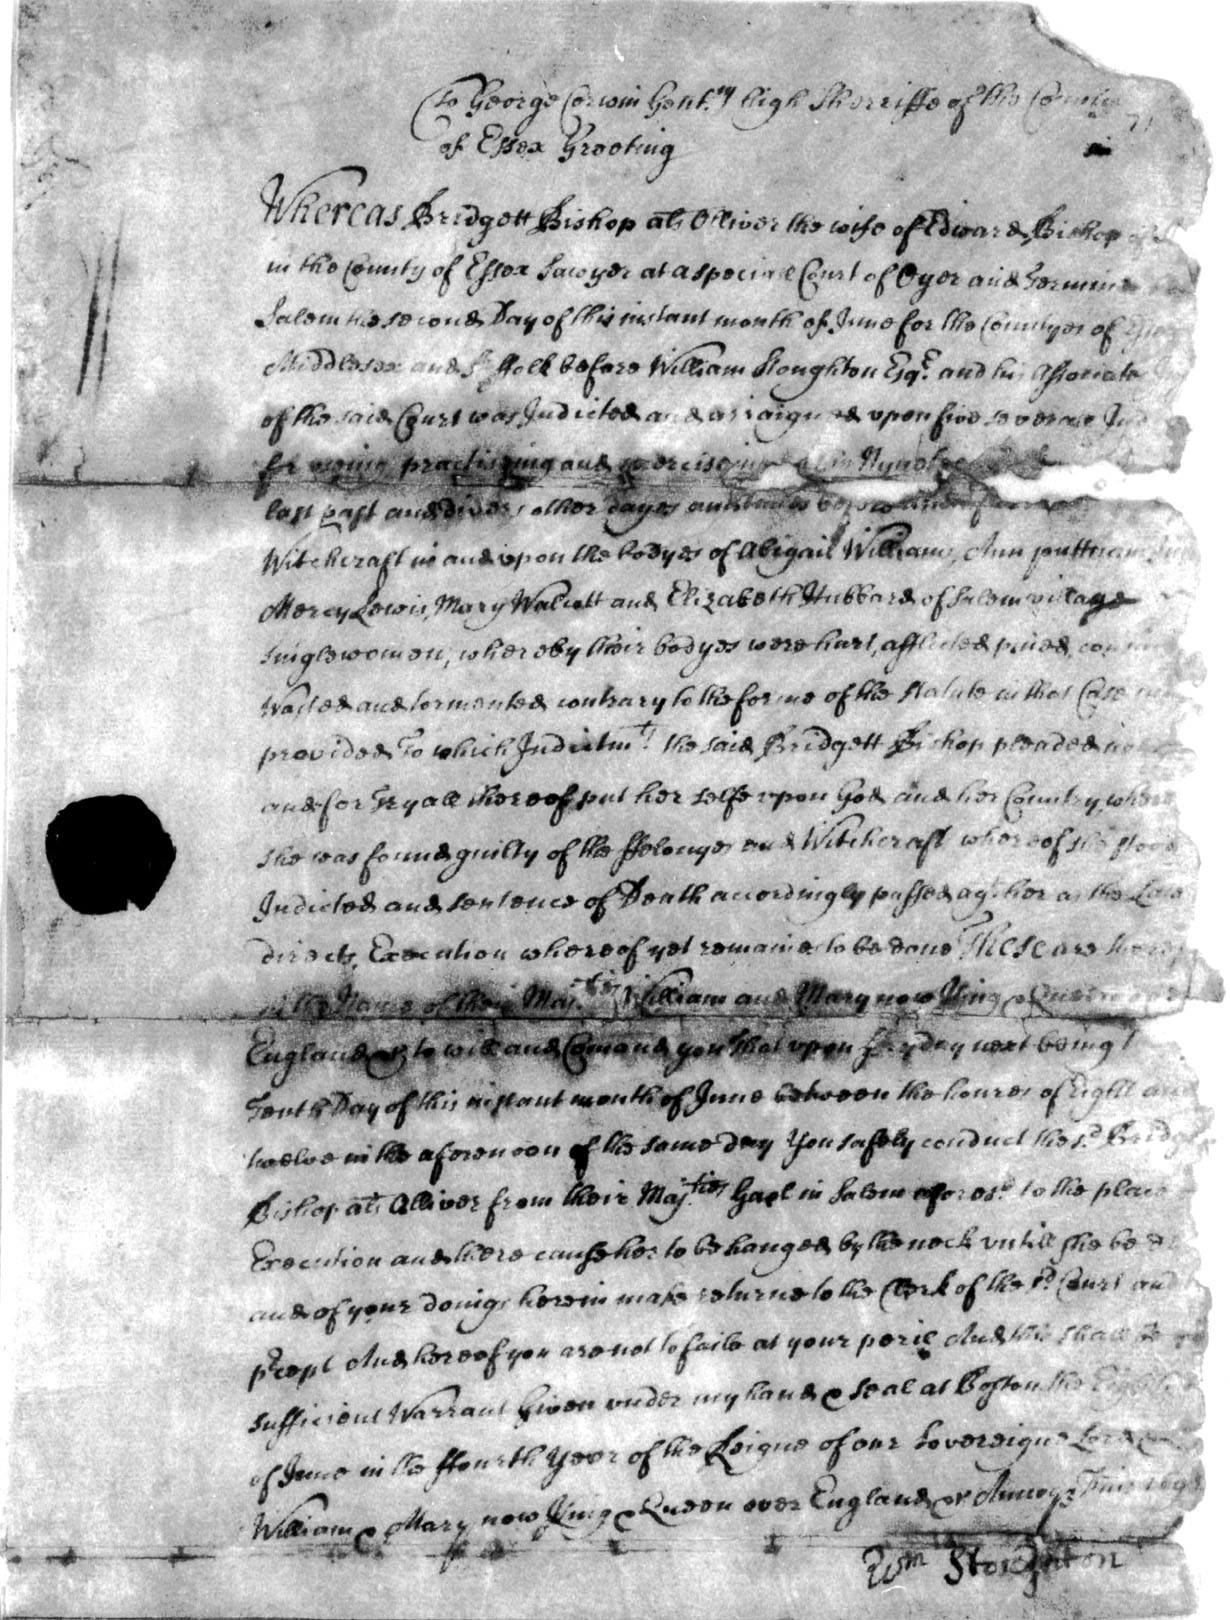 To George Corwin Gent.ⁿ high Sherriffe of the Countye
of Essex Greeting
Whereas Bridgett Bishop als Olliver the wife of Edward Bishop of
in the County of Essex Sawyer at a speciall Court of Oyer and Termin
Salem the second Day of this instant month of June for the Countyes of Essex
Middlesex and Suffolk before William Stoughton Esqᵉ. and his Associate
of the said Court was Indicted and arraigned upon five severall Ind
for useing practisinging and exercising
last past and divers other dayes and times before and after
Witchcraft in and upon the bodyes of Abigail Williams, Ann puttnam
Mercy Lewis, Mary Walcott and Elizabeth Hubbard of Salem village
singlewomen; whereby their bodyes were hurt, afflicted pined, con
Wasted and tormented contrary to the forme of the Statute in that Case
provided To which Indictmᵗˢ the said Bridgett Bishop pleaded no
and for Tryall thereof put her selfe upon God and her Country, where
she was found guilty of the ffelonyes and Witchcraft whereof she stood
Indicted and sentence of Death accordingly passed agᵗ her as the Law
directs, Execution whereof yet remaines to be done These are there
in the Name of their Majᵗⁱᵉˢ William and Mary now King & Queen over
England &c to will and Comand you That upon fryday next being t
Tenth Day of this instant month of June between the houres of Eight and
twelve in the aforenoon of the same day You safely conduct the sᵈ Bridg
Bishop als Olliver from their Majᵗⁱᵉˢ Gaol in Salem aforesᵈ to the place
Execution and there cause her to be hanged by the neck untill she be d
and of your doings herein make returne to the Clerk of the sᵈ Court and
pʳcept And hereof you are not to faile at your peril And this shall be
sufficient Warrant Given under my hand & seal at Boston the Eighth
of June in the ffourth Year of the Reigne of our Sovereigne Lord &
William & Mary now King & Queen over England &c Annoq Dm 169
Wm Stoughton